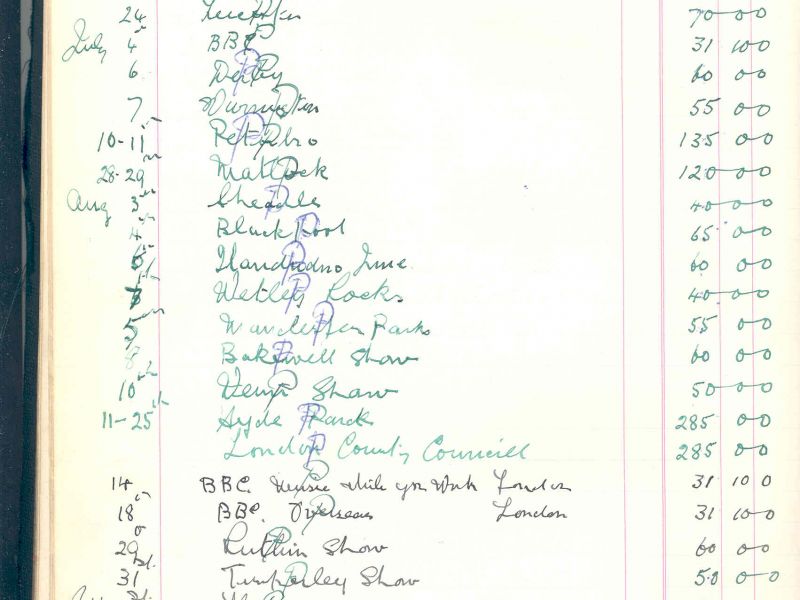 24 70-0-0
July 4 BBC 31 10-0
6 Derby 60 0-0
7 55 0-0
10-11 Pet Bro 135 0-0
28-29 Matlock 120-0-0
Aug 3 Cheadle 40-0-0
4 Blackpool 65 0-0
Llandudno June 60 0-0
Wetley Rocks 40-0-0
5 Manchester Parks 55 0-0
8 Bakewell Show 60 0-0
10 Show 50-0-0
11-25 Hyde Parck 285 0-0
London County Councill 285 0-0
14 BBC. Music while you Work London 31 10 0
18 BBC. Overseas London 31 10-0
29 Ruthin Show 60 0-0
31 Timperley Show 50 0-0